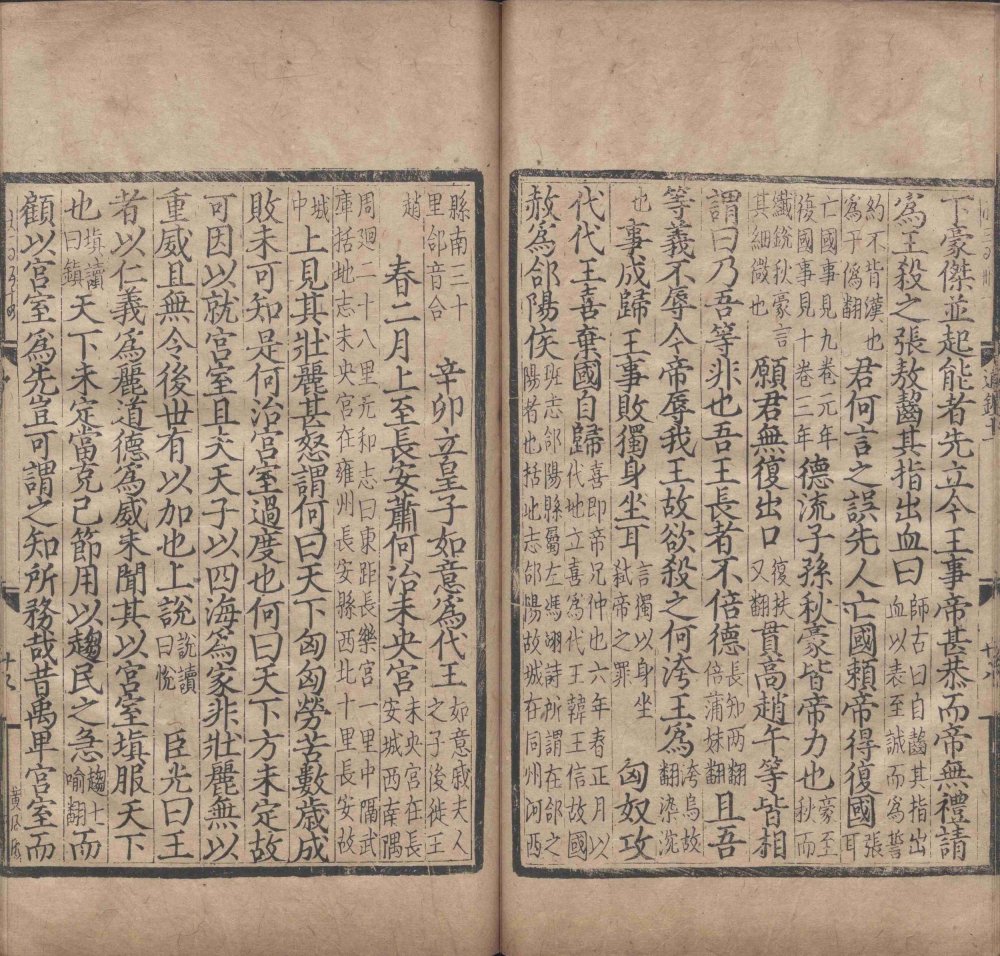 下豪傑並起能者先立今王事帝甚恭而帝無禮請
為王殺之張敖齧其指出血曰師古曰自齧其指出血以表至誠而為誓
約不背漢也為于偽翻君何言之誤先人亡國賴帝得復國張耳
亡國事見九卷元年復國事見十卷三年德流子孫秋豪皆帝力也豪至秋而
纖銳秋豪言其細微也願君無復出口復扶又翻貫高趙午等皆相
謂曰乃吾等非也吾王長者不倍德長知兩翻倍蒲妹翻且吾
等義不辱今帝辱我王故欲殺之何洿王為洿烏故翻染
也事成歸王事敗獨身坐耳言獨以身坐弒帝之罪匈奴攻
代代王喜棄國自歸喜即帝兄仲也六年春正月以代地立喜為代王韓王信故國
赦為郃陽侯班志郃陽縣屬左馮翊詩所謂在郃之陽者也括地志郃陽故城在同州河西
縣南三十里郃音合辛卯立皇子如意為代王如意戚夫人之子後徙王
趙春二月上至長安蕭何治未央宮未央宮在長安城西南隅
周廻二十八里元和志曰東距長樂宮一里中隔武庫括地志未央宮在雍州長安縣西北十里長安故
城中上見其壯麗甚怒謂何曰天下匈匈勞苦數歲成
敗未可知是何治宮室過度也何曰天下方未定故
可因以就宮室且夫天子以四海為家非壯麗無以
重威且無令後世有以加也上說說讀曰悅臣光曰王
者以仁義為麗道德為威未聞其以宮室塡服天下
也塡讀曰鎮天下未定當克己節用以趨民之急趨七喻翻而
顧以宮室為先豈可謂之知所務哉昔禹卑宮室而